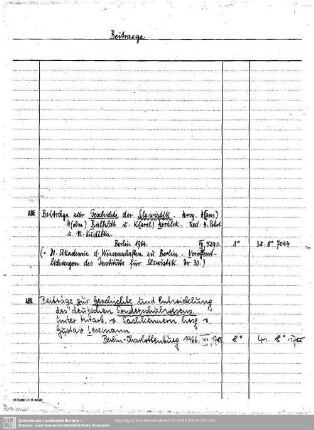 Beitraege
Beiträge zur Geschichte der Slawistik. Hrsg. H(ans)
H(olm) Bielfeldt u. K(arel) Horálek. Red. H. Pohrt
Berlin 1964.
8° 38. 8° 7044
(= Dt. Akademie d. Wissenschaften zu Berlin. Veröffent-
lichungen des Instituts für Slawistik Nr. 30.)
Beiträge zur Geschichte und Entwicklung
des deutschen Sonderschulwesens.
Unter Mitarb. v. Fachkennern hrsg. v.
Gustav Lesemann
Berlin-Charlottenburg 1966. 8° 41. 8°